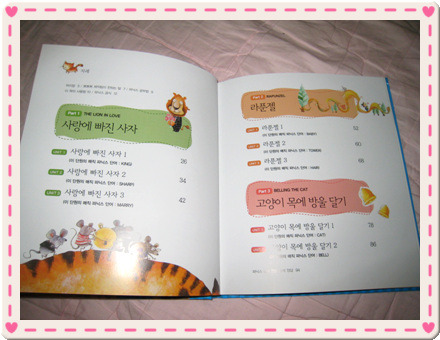 차례
Part 1 THE LION IN LOVE
사랑에 빠진 사자
UNIT 1 사랑에 빠진 사자 1 26
(이 단원의 매직 파닉스 단어 : KING)
UNIT 2 사랑에 빠진 사자 2 34
(이 단원의 매직 파닉스 단어 : SHARP)
UNIT 3 사랑에 빠진 사자 3 42
(이 단원의 매직 파닉스 단어 : MARRY)
Part 2 RAPUNZEL
라푼젤
UNIT 1 라푼젤 1 52
(이 단원의 매직 파닉스 단어 : BABY)
UNIT 2 라푼젤 2 60
(이 단원의 매직 파닉스 단어 : TOWER)
UNIT 3 라푼젤 3 68
(이 단원의 매직 파닉스 단어 : HAIR)
Part 3 BELLING THE CAT
고양이 목에 방울 달기
UNIT 1 고양이 목에 방울 달기 1 78
(이 단원의 매직 파닉스 단어 : CAT)
UNIT 2 고양이 목에 방울 달기 2 86
(이 단원의 매직 파닉스 단어 : BELL)